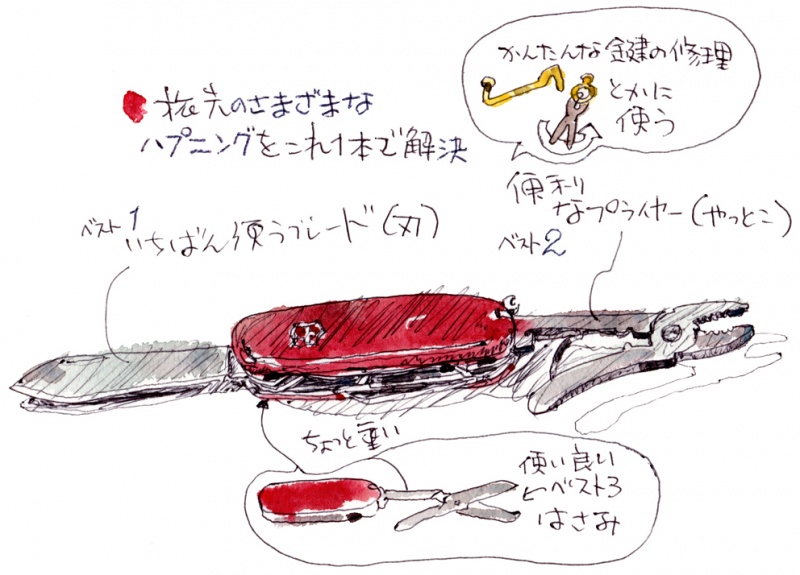 かんたんな鍵の修理
とかに
使う
旅先のさまざまな
ハプニングをこれ1本で解決
便利
なプライヤー(やっとこ)
ベスト2
ベスト1
いちばん使うブレード(刃)
ちょっと重い
使い良い
ベスト3
はさみ